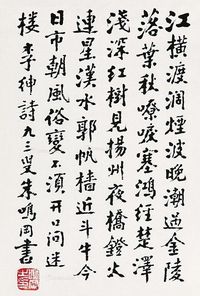 江橫渡濶煙波晚潮過金陵
落葉秋嘹唳塞鴻經楚澤
淺深紅樹見揚州夜橋鐙火
連星漢水郭帆檣近斗牛今
日市朝風俗變不須開口問迷
楼李紳詩九三叟朱鳴岡書